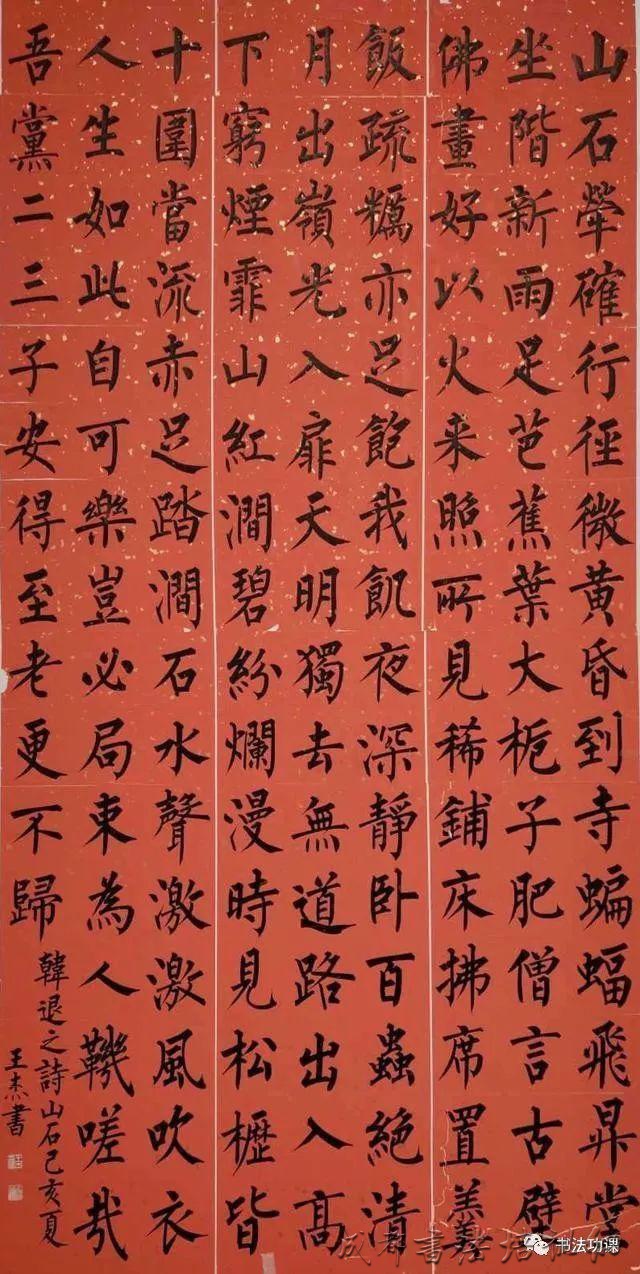 山石犖確行徑微黃昏到寺蝙蝠飛昇堂
坐階新雨足芭蕉葉大栀子肥僧言古壁
佛畫好以火来照所見稀鋪床拂席置羹
飯疏糲亦足飽我飢夜深靜卧百蟲絶清
月出嶺光入扉天明獨去無道路出入高
下窮煙霏山紅澗碧紛爛漫時見松櫪皆
十圍當流赤足踏澗石水聲激激風吹衣
人生如此自可樂豈必局束為人鞿嗟哉
吾黨二三子安得至老更不歸
韓退之詩山石己亥夏
王杰書
书法功课